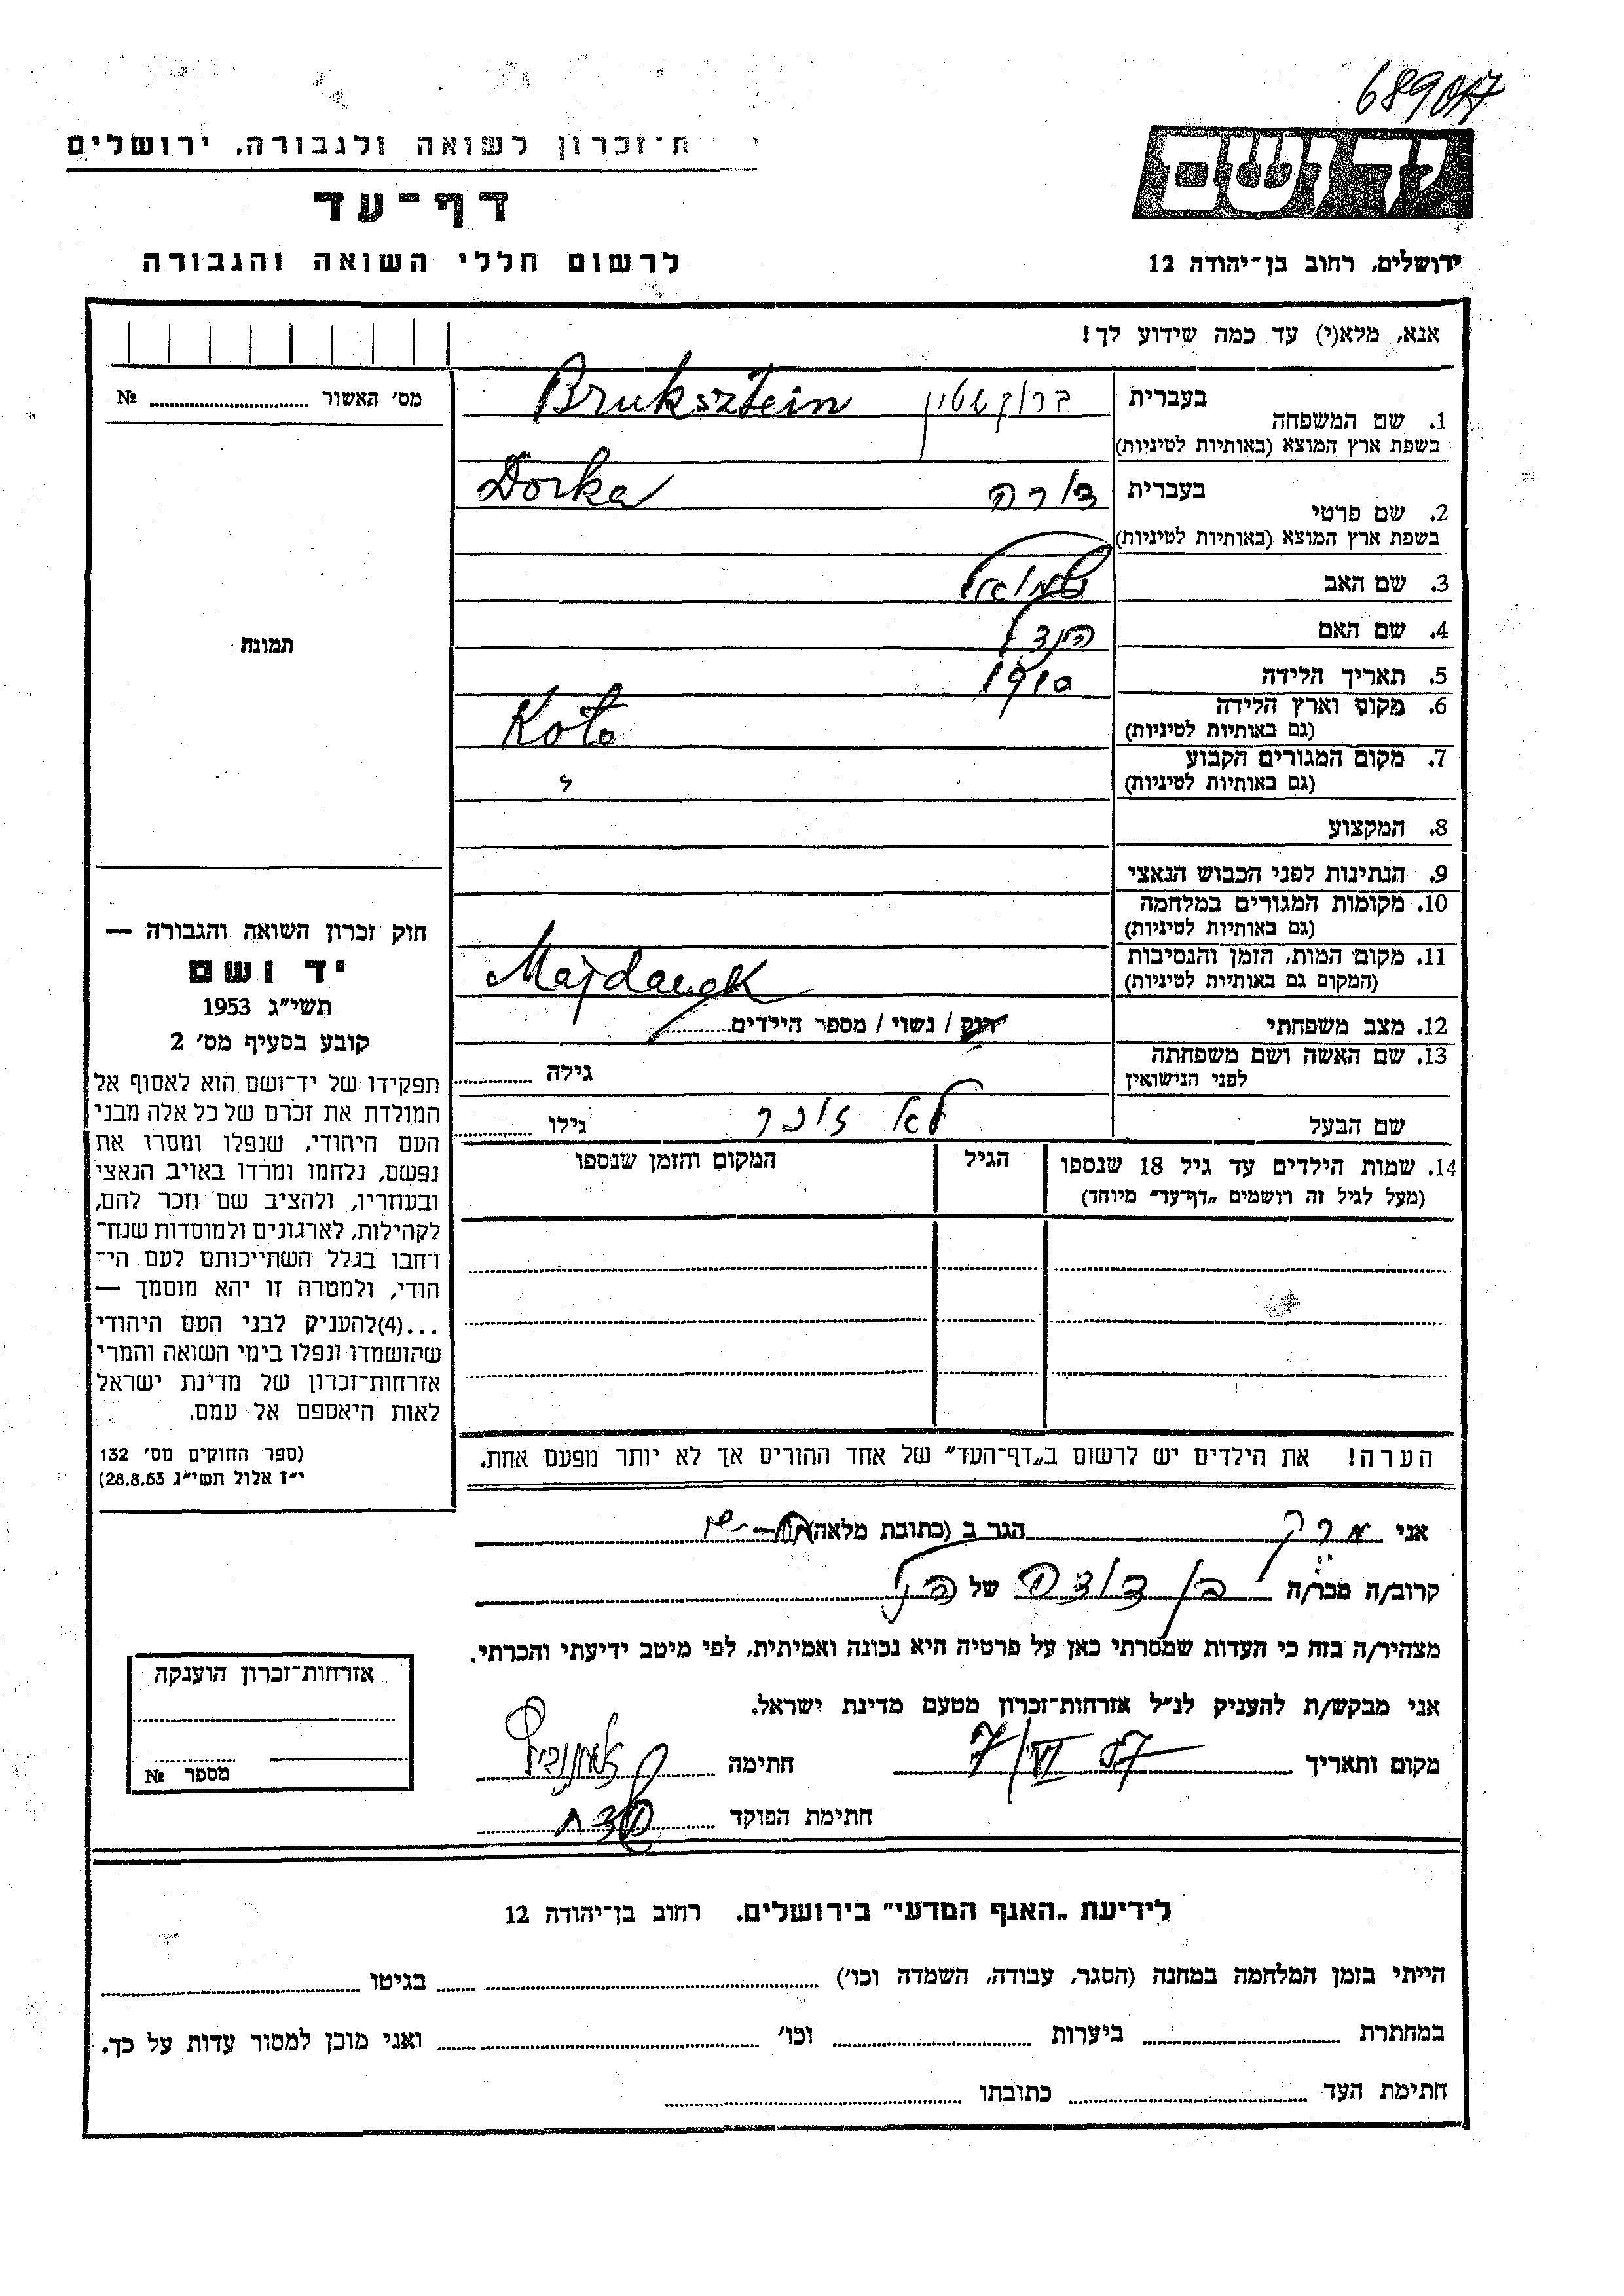 689017
ת־זכרון לשואה ולגבורה, ירושלים
דף־עד
לרשום חללי השואה והגבורה
יד ושם
ירושלים, רחוב בן־יהודה 12
אנא, מלא(י) עד כמה שידוע לך!
מס׳ האשור № 
בעברית ברוקשטיין Bruksztein
1. שם המשפחה
בשפת ארץ המוצא (באותיות לטיניות)
בעברית דורה Dorka
2. שם פרטי
בשפת ארץ המוצא (באותיות לטיניות)
3. שם האב שמואל
4. שם האם הינדל
5. תאריך הלידה 1910
6. מקום וארץ הלידה
(גם באותיות לטיניות) Koło
7. מקום המגורים הקבוע
(גם באותיות לטיניות)
8. המקצוע
9. הנתינות לפני הכבוש הנאצי
10. מקומות המגורים במלחמה
(גם באותיות לטיניות)
11. מקום המות, הזמן והנסיבות
(המקום גם באותיות לטיניות) Majdanek
12. מצב משפחתי רוק / נשוי / מספר הילדים
13. שם האשה ושם משפחתה
לפני הנישואין גילה
שם הבעל לא זוכר גילו
14. שמות הילדים עד גיל 18 שנספו הגיל המקום והזמן שנספו
(מעל לגיל זה רושמים „דף־עד״ מיוחד)
הערה! את הילדים יש לרשום ב„דף־העד״ של אחד ההורים אך לא יותר מפעם אחת.
תמונה
חוק זכרון השואה והגבורה —
יד ושם
תשי״ג 1953
קובע בסעיף מס׳ 2
תפקידו של יד־ושם הוא לאסוף אל
המולדת את זכרם של כל אלה מבני
העם היהודי, שנפלו ומסרו את
נפשם, נלחמו ומרדו באויב הנאצי
ובעוזריו, ולהציב שם וזכר להם,
לקהילות, לארגונים ולמוסדות שנח־
רחבו בגלל השתייכותם לעם הי־
הודי, ולמטרה זו יהא מוסמך —
...(4)להעניק לבני העם היהודי
שהושמדו ונפלו בימי השואה והמרי
אזרחות־זכרון של מדינת ישראל
לאות היאספם אל עמם.
(ספר החוקים מס׳ 132
י״ז אלול תשי״ג 28.8.53)
אני הגר ב (כתובת מלאה)
קרוב/ה מכר/ה בן דודה של
מצהיר/ה בזה כי העדות שמסרתי כאן על פרטיה היא נכונה ואמיתית, לפי מיטב ידיעתי והכרתי.
אני מבקש/ת להעניק לנ״ל אזרחות־זכרון מטעם מדינת ישראל.
מקום ותאריך 7/VI 57 חתימה
חתימת הפוקד
אזרחות־זכרון הוענקה
מספר №
לידיעת „האגף המדעי״ בירושלים. רחוב בן־יהודה 12
הייתי בזמן המלחמה במחנה (הסגר, עבודה, השמדה וכו׳) בגיטו
במחתרת ביערות וכו׳ ואני מוכן למסור עדות על כך.
חתימת העד כתובתו